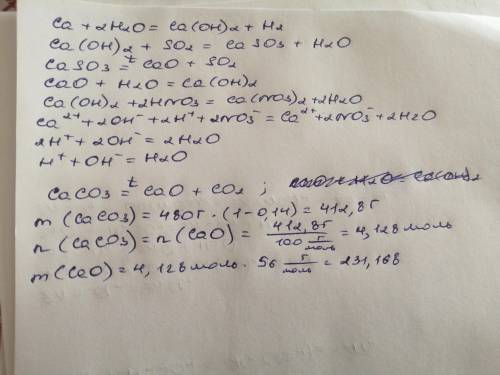 Ca + 2H2O = Ca(OH)2 + H2
Ca(OH)2 + SO2 = CaSO3 + H2O
CaSO3 =t CaO + SO2
CaO + H2O = Ca(OH)2
Ca(OH)2 + 2HNO3 = Ca(NO3)2 + 2H2O
Ca2+ + 2OH- + 2H+ + 2NO3- = Ca2+ + 2NO3- + 2H2O
2H+ + 2OH- = 2H2O
H+ + OH- = H2O
CaCO3 =t CaO + CO2 ;
m (CaCO3) = 480г · (1-0,14) = 412,8г
n (CaCO3) = n (CaO) = 412,8г / 100 г/моль = 4,128 моль
m(CaO) = 4,128 моль · 56 г/моль = 231,168